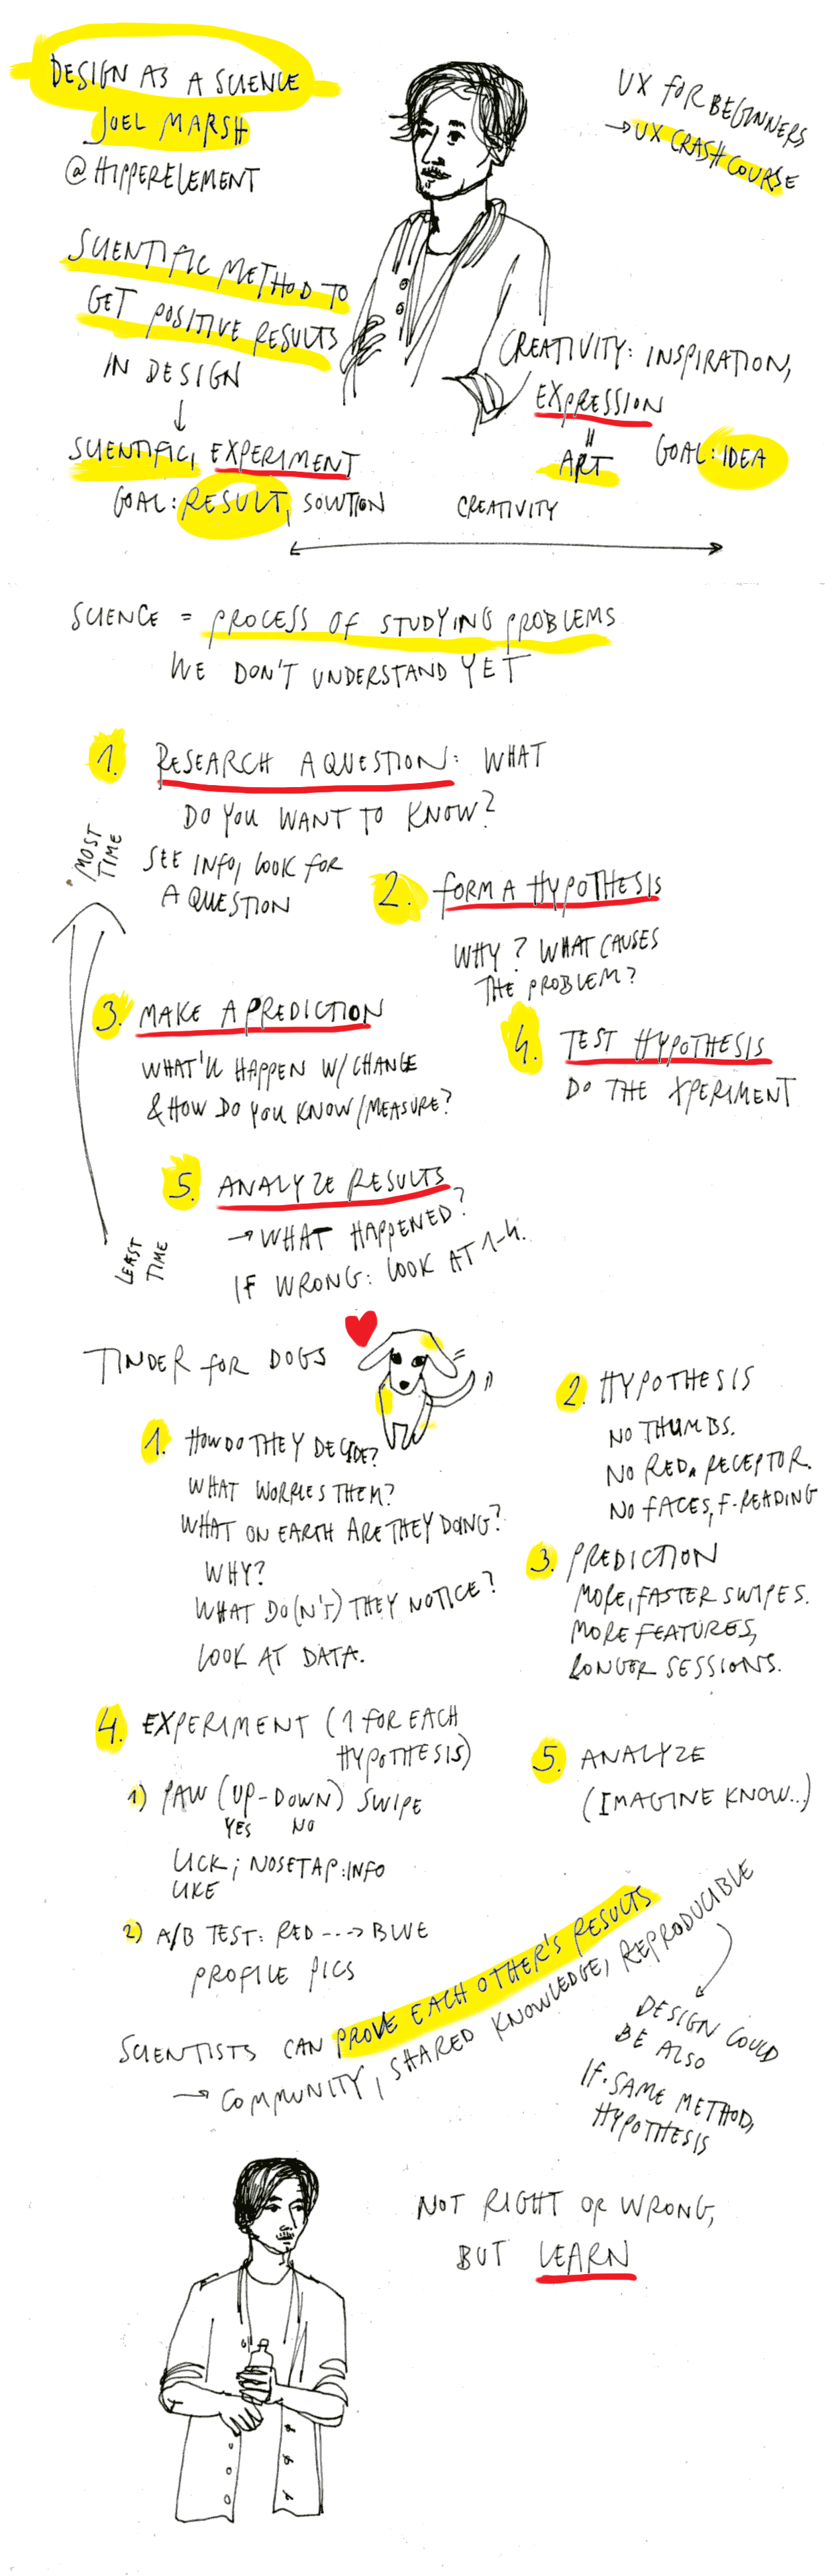 DESIGN AS A SCIENCE
JOEL MARSH
@HIPPERELEMENT
UX FOR BEGINNERS
→ UX CRASH COURSE
SCIENTIFIC METHOD TO
GET POSITIVE RESULTS
IN DESIGN
↓
SCIENTIFIC, EXPERIMENT
GOAL: RESULT, SOLUTION
CREATIVITY: INSPIRATION,
EXPRESSION
=
ART
GOAL: IDEA
CREATIVITY
SCIENCE = PROCESS OF STUDYING PROBLEMS
WE DON'T UNDERSTAND YET
1. RESEARCH A QUESTION: WHAT
DO YOU WANT TO KNOW?
SEE INFO, LOOK FOR
A QUESTION
MOST
TIME
2. FORM A HYPOTHESIS
WHY? WHAT CAUSES
THE PROBLEM?
3. MAKE A PREDICTION
WHAT'LL HAPPEN W/ CHANGE
& HOW DO YOU KNOW/MEASURE?
4. TEST HYPOTHESIS
DO THE XPERIMENT
5. ANALYZE RESULTS
→ WHAT HAPPENED?
IF WRONG: LOOK AT 1-4.
LEAST
TIME
TINDER FOR DOGS
1. HOW DO THEY DECIDE?
WHAT WORRIES THEM?
WHAT ON EARTH ARE THEY DOING?
WHY?
WHAT DO(N'T) THEY NOTICE?
LOOK AT DATA.
2. HYPOTHESIS
NO THUMBS.
NO RED RECEPTOR.
NO FACES, F-READING
3. PREDICTION
MORE, FASTER SWIPES.
MORE FEATURES,
LONGER SESSIONS.
4. EXPERIMENT (1 FOR EACH
HYPOTHESIS)
1) PAW (UP-DOWN) SWIPE
YES NO
LICK; NOSETAP: INFO
LIKE
2) A/B TEST: RED --→ BLUE
PROFILE PICS
5. ANALYZE
(IMAGINE KNOW...)
SCIENTISTS CAN PROVE EACH OTHER'S RESULTS
→ COMMUNITY, SHARED KNOWLEDGE, REPRODUCIBLE
DESIGN COULD
BE ALSO
IF SAME METHOD,
HYPOTHESIS
NOT RIGHT OR WRONG,
BUT LEARN